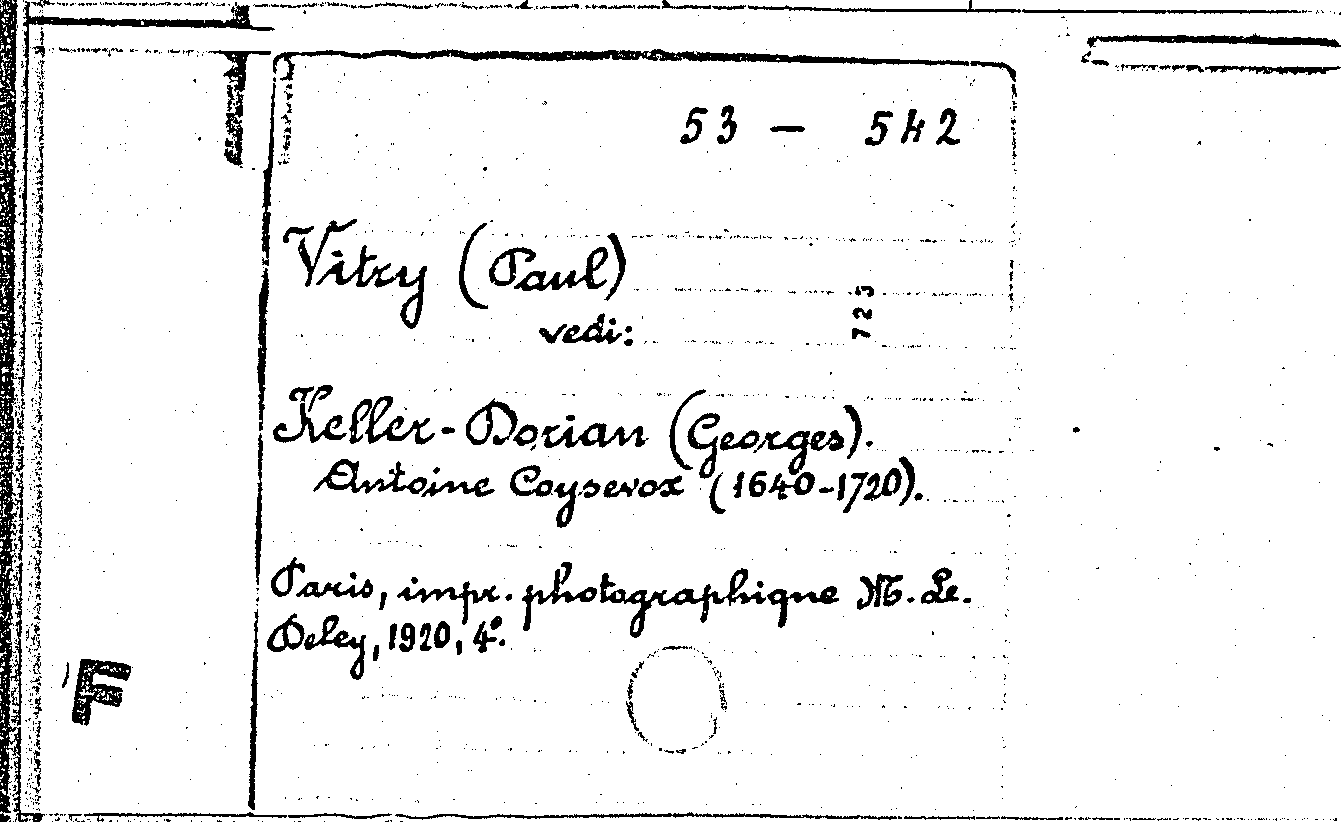 53 - 542
Vitry (Paul)
725
vedi:
Keller-Dorian (Georges).
Antoine Coysevox (1640-1720).
Paris, impr. photographique M. Le.
Deley, 1920, 4º.
F